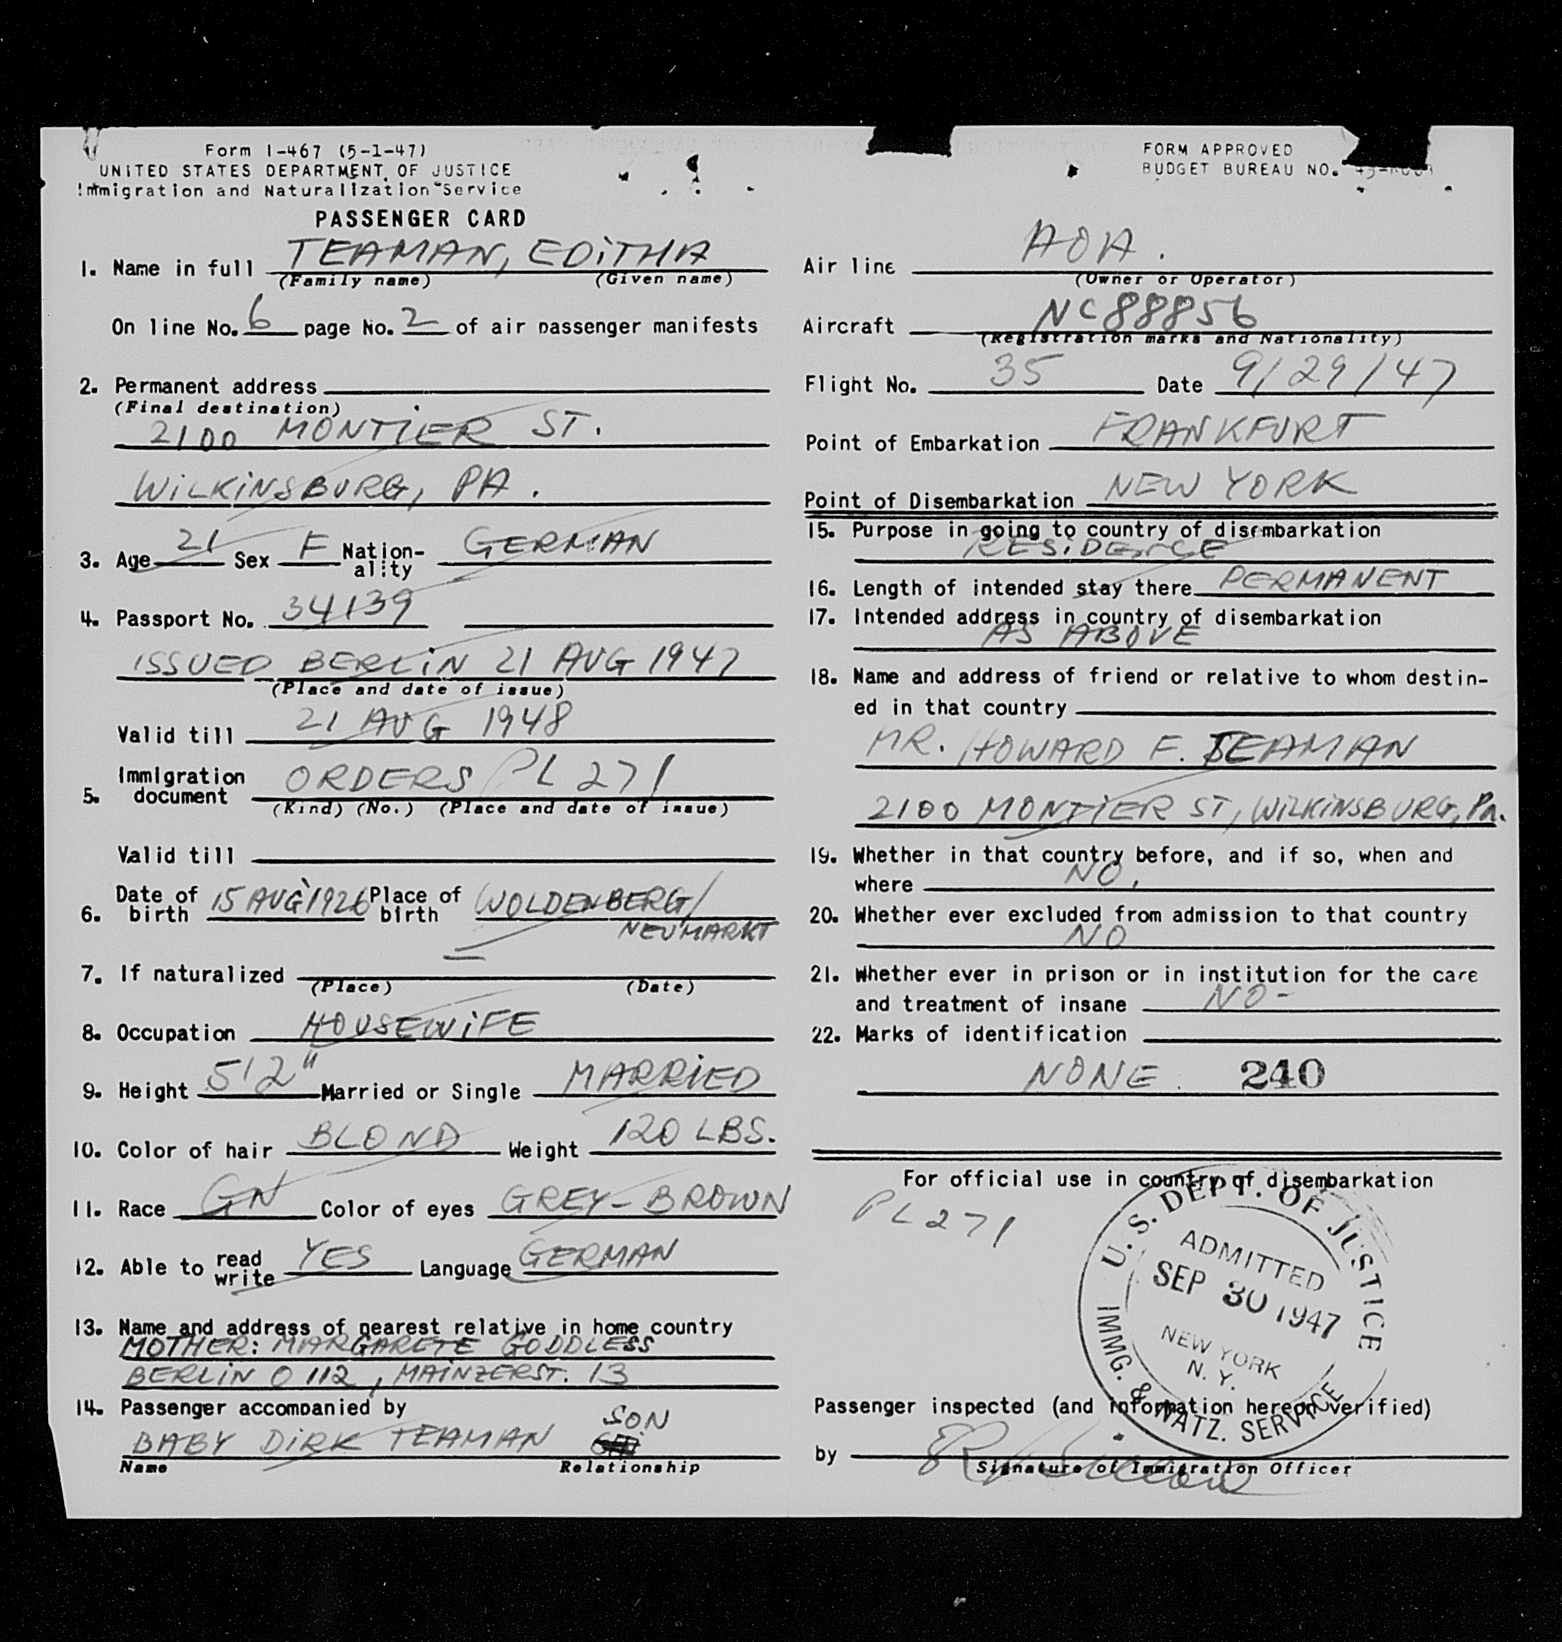 Form I-467 (5-1-47)
UNITED STATES DEPARTMENT OF JUSTICE
Immigration and Naturalization Service
PASSENGER CARD
1. Name in full TEAMAN, EDITHA
(Family name) (Given name)
On line No. 6 page No. 2 of air passenger manifests
2. Permanent address
(Final destination)
2100 MONTIER ST.
WILKINSBURG, PA.
3. Age 21 Sex F Nation-ality GERMAN
4. Passport No. 34139
ISSUED BERLIN 21 AUG 1947
(Place and date of issue)
Valid till 21 AUG 1948
5. Immigration document ORDERS PL 271
(Kind) (No.) (Place and date of issue)
Valid till
6. Date of birth 15 AUG 1926 Place of birth WOLDENBERG/
NEUMARKT
7. If naturalized
(Place) (Date)
8. Occupation HOUSEWIFE
9. Height 5'2" Married or Single MARRIED
10. Color of hair BLOND Weight 120 LBS.
11. Race GN Color of eyes GREY-BROWN
12. Able to read write YES Language GERMAN
13. Name and address of nearest relative in home country
MOTHER: MARGARETE GODDLESS
BERLIN O 112, MAINZERST. 13
14. Passenger accompanied by
BABY DIRK TEAMAN SON
Name Relationship
FORM APPROVED
BUDGET BUREAU NO.
Air line AOA.
(Owner or Operator)
Aircraft NC88856
(Registration marks and Nationality)
Flight No. 35 Date 9/29/47
Point of Embarkation FRANKFURT
Point of Disembarkation NEW YORK
15. Purpose in going to country of disembarkation
RESIDENCE
16. Length of intended stay there PERMANENT
17. Intended address in country of disembarkation
AS ABOVE
18. Name and address of friend or relative to whom destin-
ed in that country
MR. HOWARD F. TEAMAN
2100 MONTIER ST, WILKINSBURG, Pa.
19. Whether in that country before, and if so, when and
where NO.
20. Whether ever excluded from admission to that country
NO
21. Whether ever in prison or in institution for the care
and treatment of insane NO-
22. Marks of identification
NONE 240
For official use in country of disembarkation
PL 271
U.S. DEPT. OF JUSTICE
ADMITTED
SEP 30 1947
NEW YORK
N. Y.
IMMG. & NATZ. SERVICE
Passenger inspected (and information hereon verified)
by
Signature of Immigration Officer